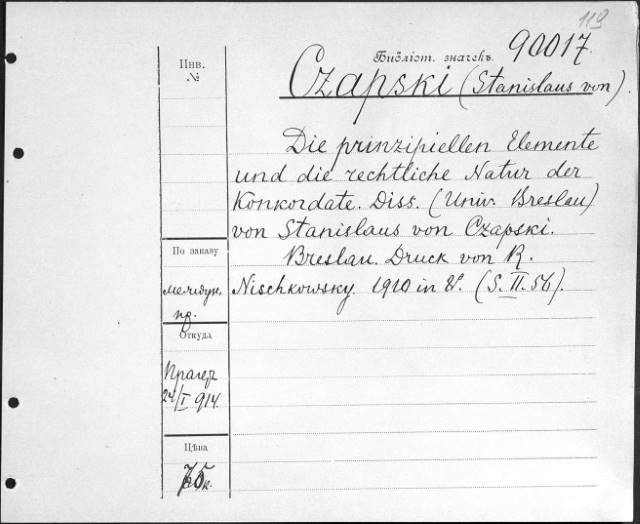 119
Библіот. значекъ 90017.
Инв.
№
Czapski (Stanislaus von).
Die prinzipiellen Elemente
und die rechtliche Natur der
Konkordate. Diss. (Univ. Breslau)
von Stanislaus von Czapski.
Breslau. Druck von R.
Nischkowsky. 1910 in 8°. (S. II. 56).
По заказу
междун.
пр.
Откуда
Прагер
24/I 914.
Цѣна
к.